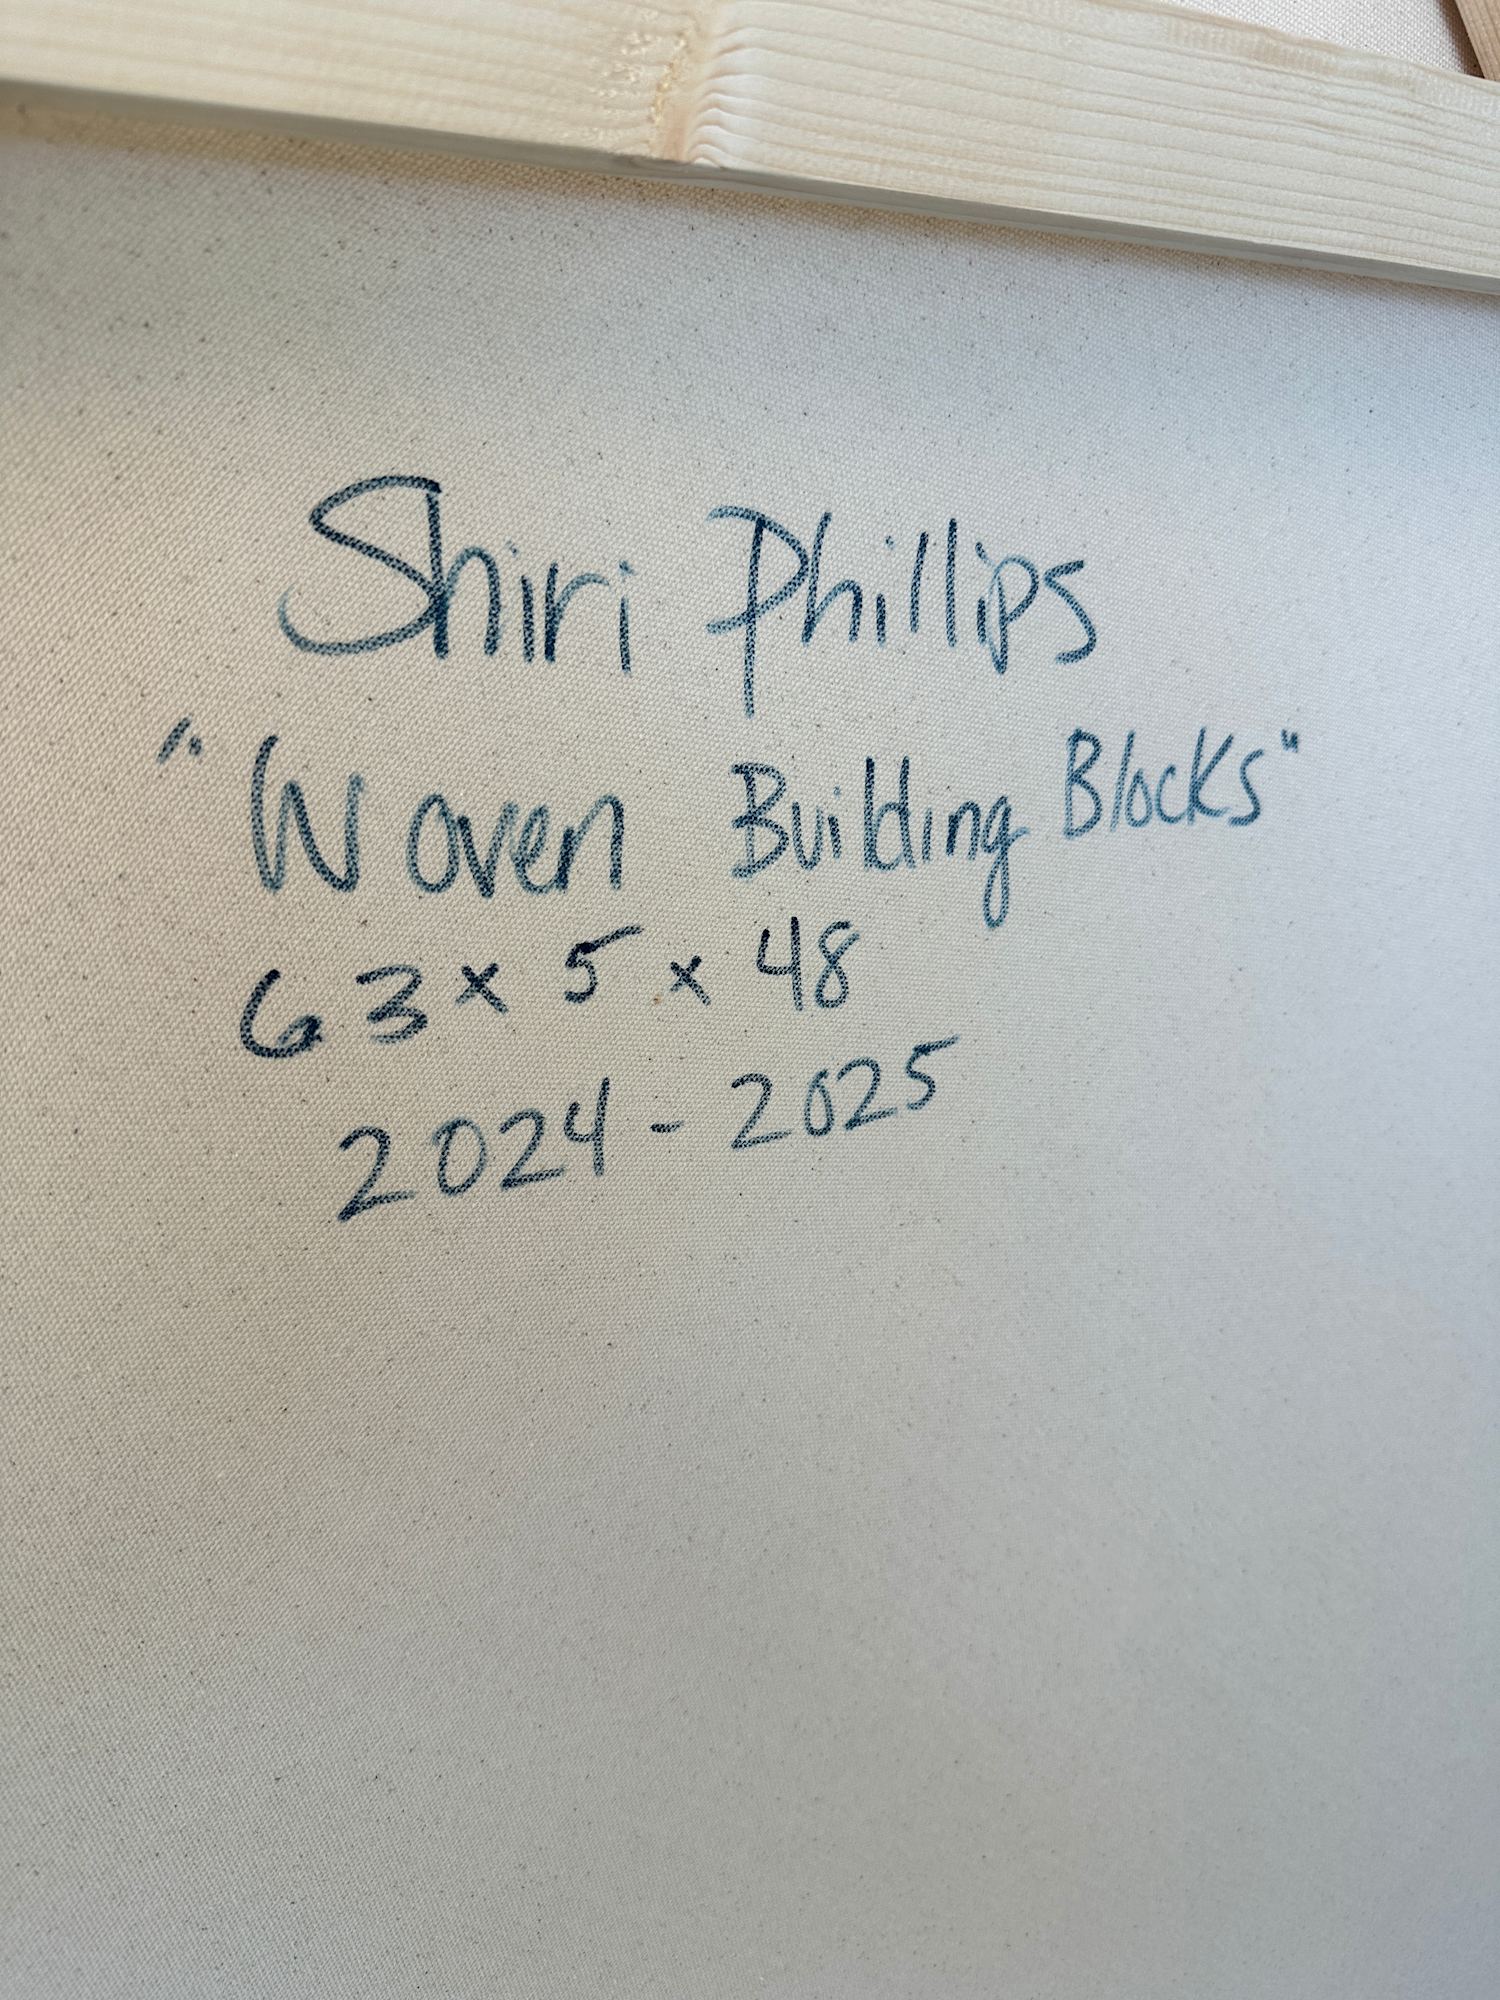 Shiri Phillips
"Woven Building Blocks"
63 x 5 x 48
2024 - 2025